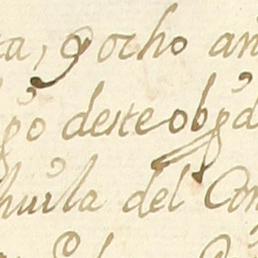 ta, y ocho an
go deste obpd
huila del Con